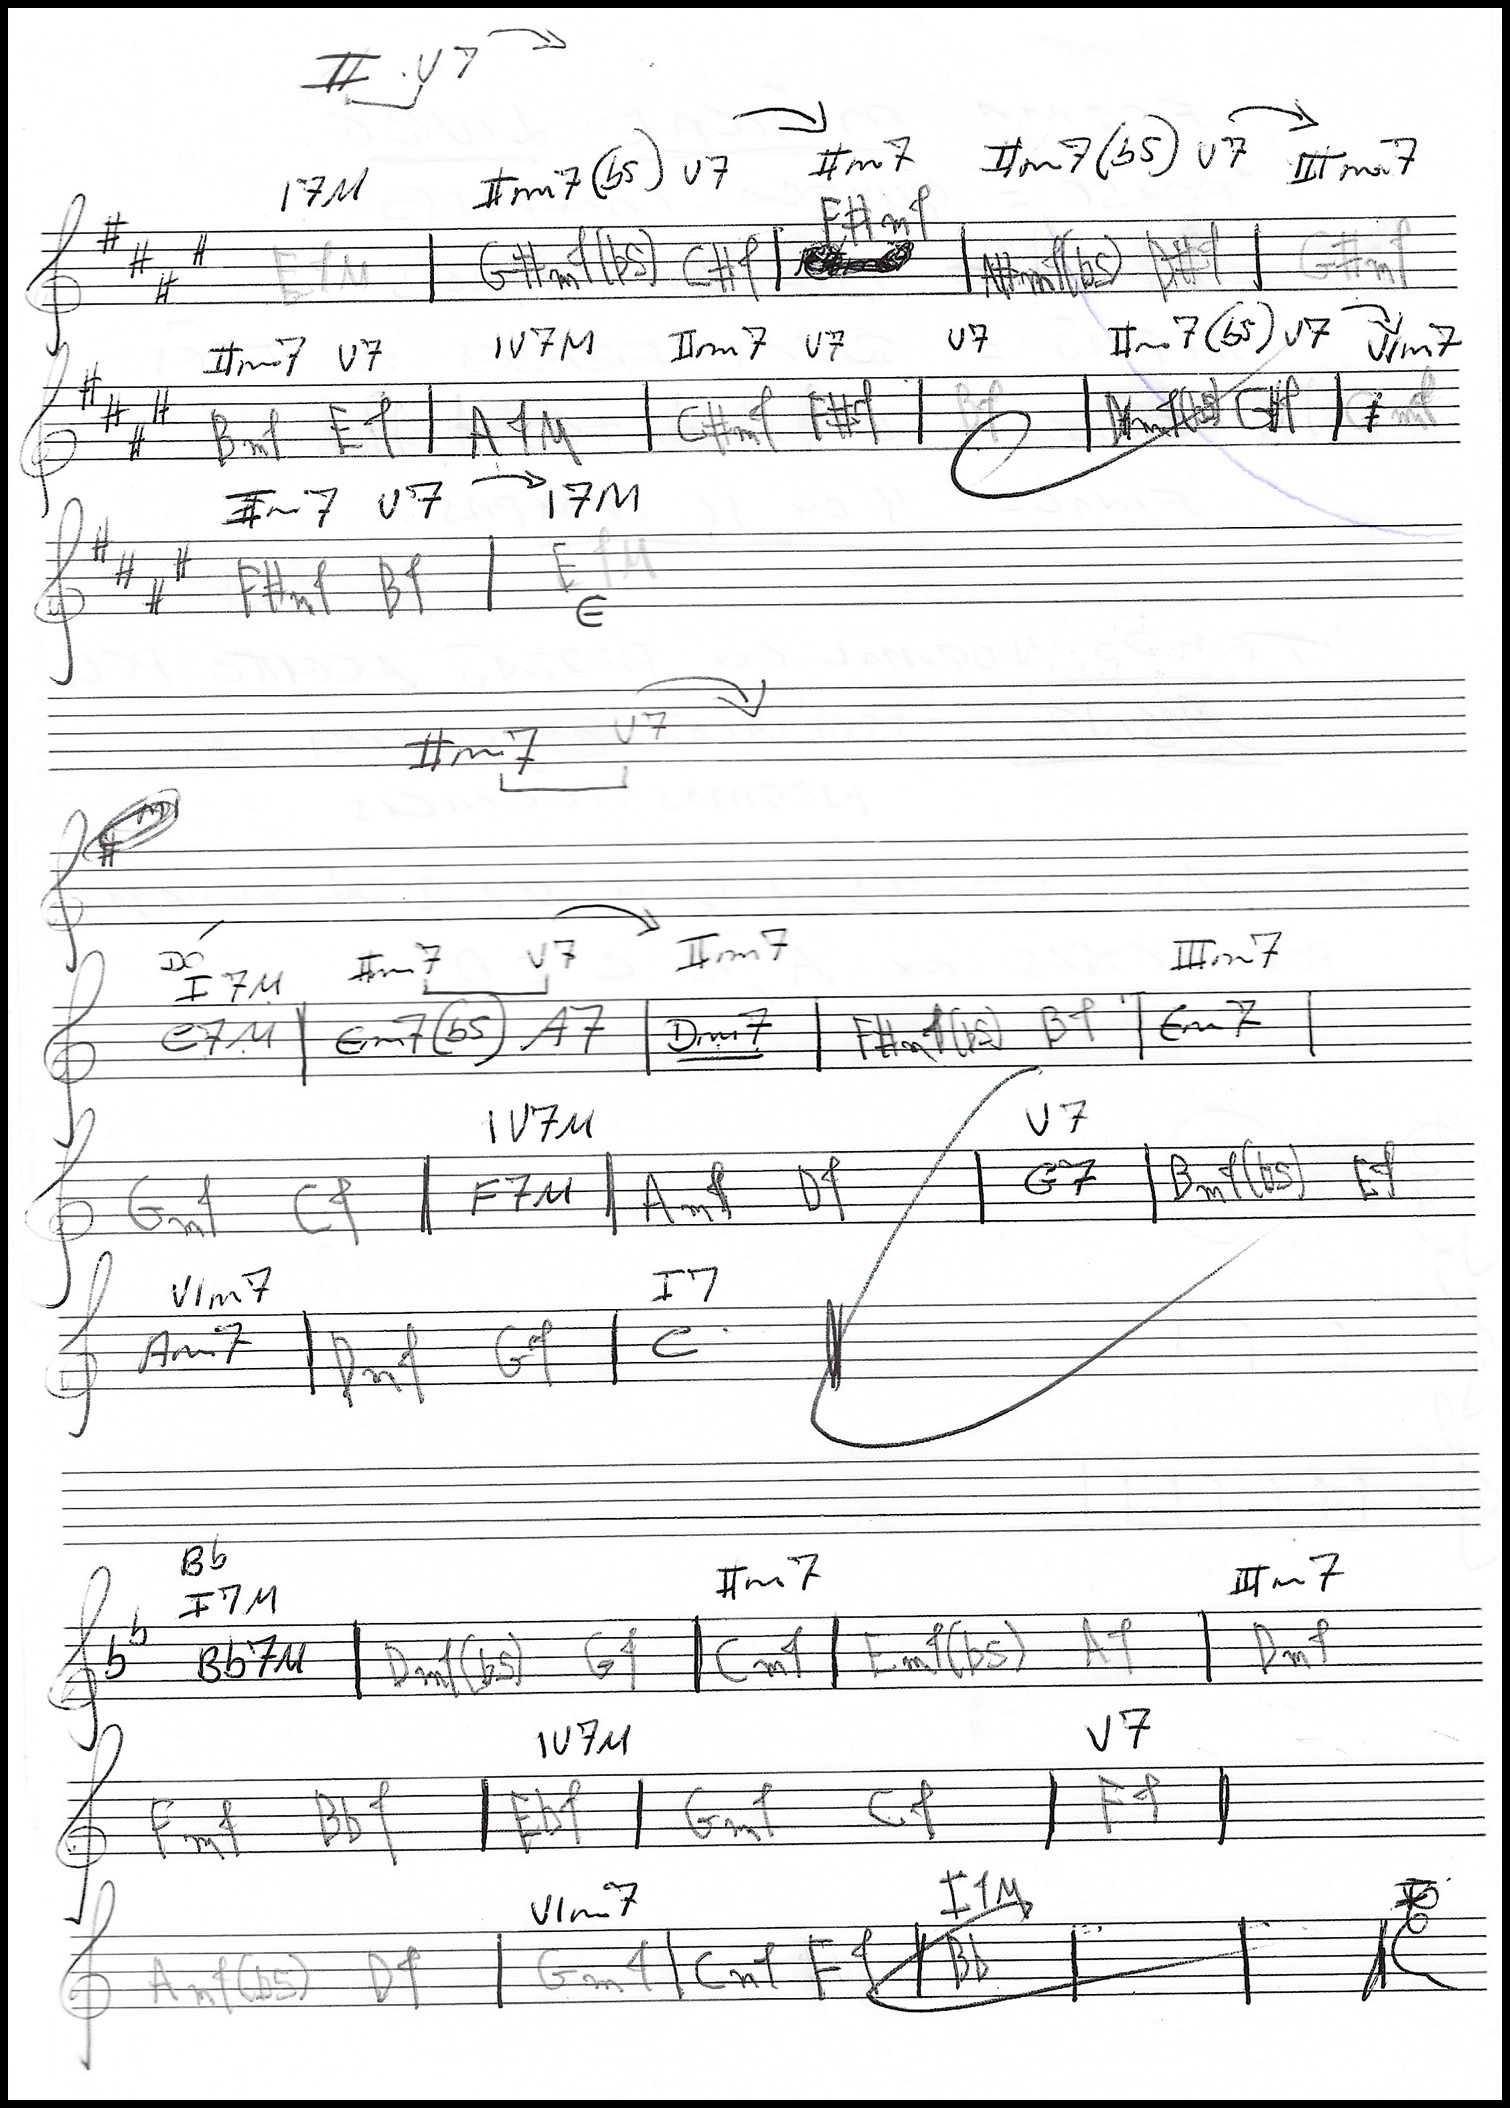 II V7
I7M IIm7(b5) V7 IIm7 IIm7(b5) V7 IIIm7
E7M G#m7(b5) C#7 F#m7 A#m7(b5) D#7 G#m7
IIm7 V7 IV7M IIm7 V7 V7 IIm7(b5) V7 VIm7
Bm7 E7 A7M C#m7 F#7 B7 D#m7(b5) G#7 C#m7
IIm7 V7 I7M
F#m7 B7 E7M
E
IIm7 V7
DÓ
I7M IIm7 V7 IIm7 IIIm7
C7M Em7(b5) A7 Dm7 F#m7(b5) B7 Em7
IV7M V7
Gm7 C7 F7M Am7 D7 G7 Bm7(b5) E7
VIm7 I7
Am7 Dm7 G7 C
Bb
I7M IIm7 IIIm7
Bb7M Dm7(b5) G7 Cm7 Em7(b5) A7 Dm7
IV7M V7
Fm7 Bb7 Eb7 Gm7 C7 F7
VIm7 I7M
Am7(b5) D7 Gm7 Cm7 F7 Bb